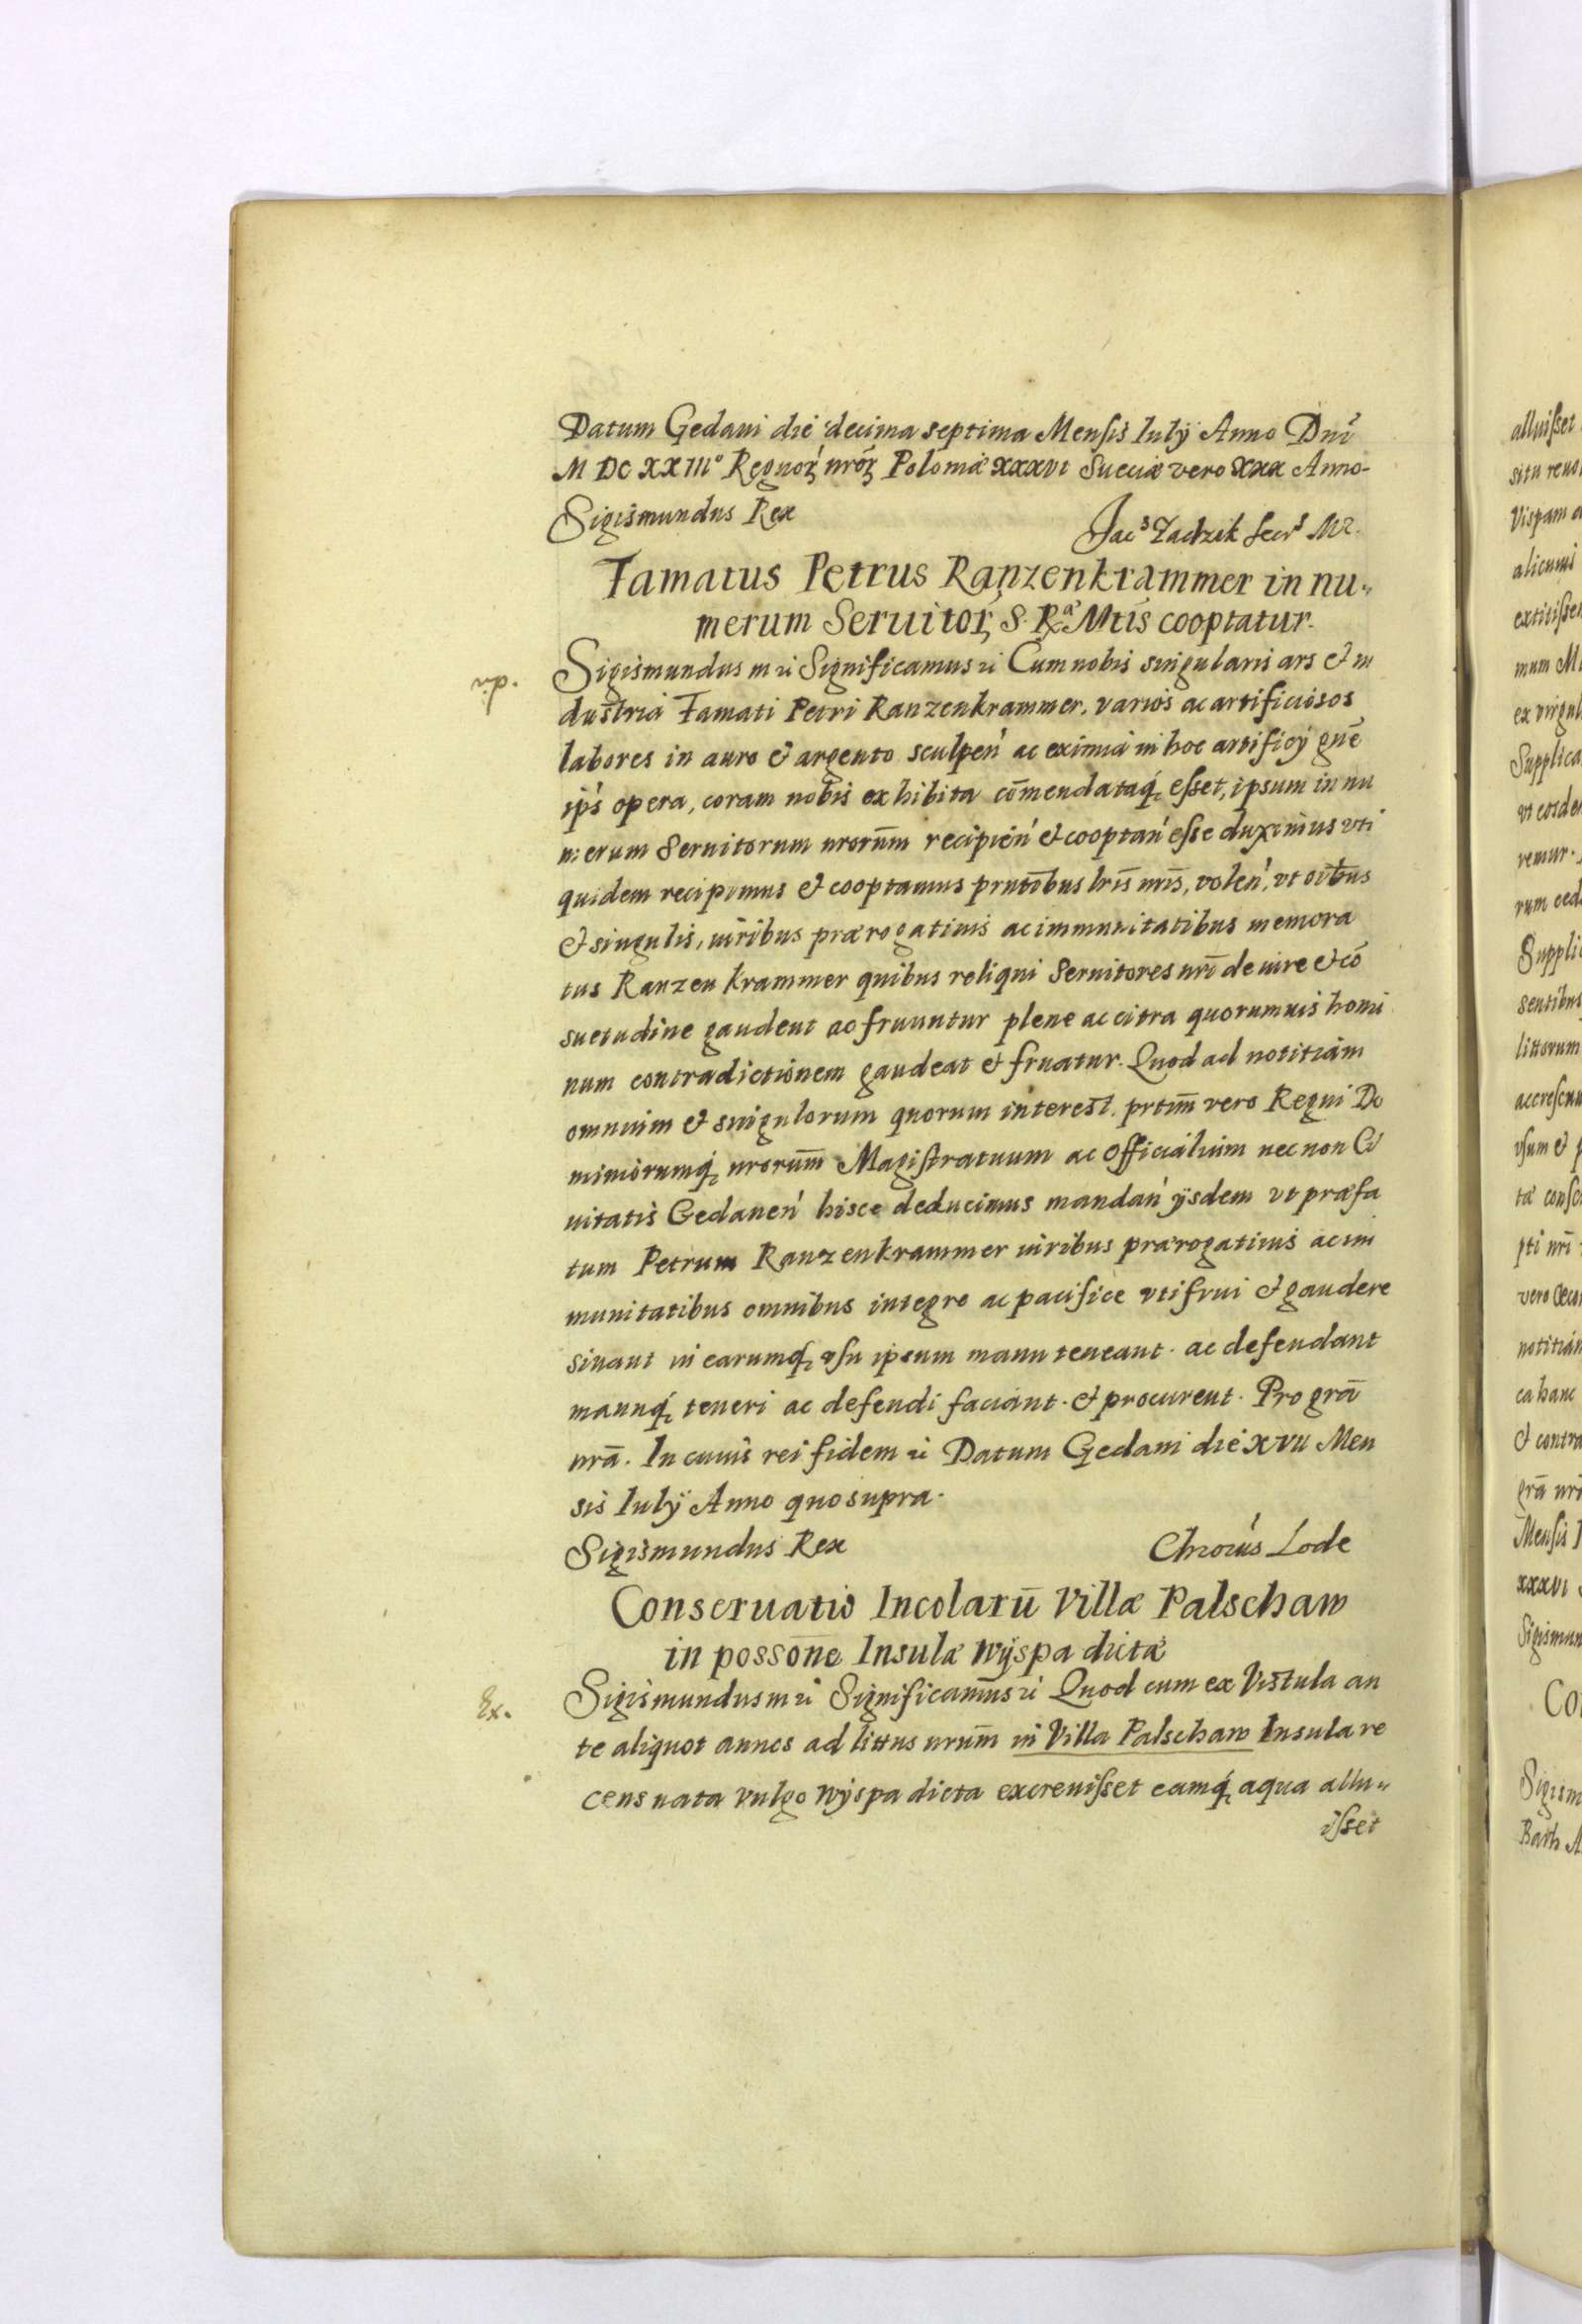 Datum Gedani die decima septima Mensis Iulÿ Anno Dnĩ
M DC XXIIIº Regnoꝝ nrõꝝ Poloniæ XXXVI Sueciæ vero XXX Anno
Sigismundus Rex
Jacˢ Zadzik Secrˢ MR.
Famatus Petrus Ranzenkrammer in nu„
merum Seruitoꝝ S. Rᵃᵉ Mtis cooptatur.
v.p.
Sigismundus III ꝛc̃ Significamus ꝛc̃ Cum nobis singularis ars et in
dustria Famati Petri Ranzenkrammer, varios ac artificiosos
labores in auro et argento sculpen̍ ac eximia in hoc artificÿ gñe
ip̃s opera, coram nobis exhibita cõmendataq́ꝫ esset, ipsum in nu
merum Seruitorum nrorũm recipien̍ et cooptan̍ esse duximus vti
quidem recipimus et cooptamus prntõbus lrĩs nrĩs, volen̍, vt oĩbus
et singulis, iuribus prærogatiuis ac immunitatibus memora
tus Ranzenkrammer quibus reliqui Seruitores nrĩ de iure et cõ
suetudine gaudent ac fruuntur plene ac citra quorumuis homi
num contradictionem gaudeat et fruatur. Quod ad notitiam
omnium et singulorum quorum interest. prtĩm vero Regni Do
miniorumq́ꝫ nrorũm Magistratuum ac Officialium nec non Ci
uitatis Gedanen̍ hisce deducimus mandan̍ ÿsdem vt præfa
tum Petrum Ranzenkrammer iuribus prærogatiuis ac im
munitatibus omnibus integre ac pacifice vti frui et gaudere
sinant in earumq́ꝫ vsu ipsum manu teneant. ac defendant
manuq́ꝫ teneri ac defendi faciant. et procurent. Pro grã
nrã. In cuius rei fidem ꝛc̃ Datum Gedani die XVII Men
sis Iulÿ Anno quo supra.
Sigismundus Rex
Chrõus Lode
Conseruatio Incolarũ Villæ Palschaw
in possõne Insulæ Wÿspa dictæ
Ex.
Sigismundus III ꝛc̃ Significamus ꝛc̃ Quod cum ex Vistula an
te aliquot annos ad littus nrũm in Villa Palschaw Insula re
cens nata vulgo Wÿspa dicta excreuisset eamq́ꝫ aqua allu„
isset